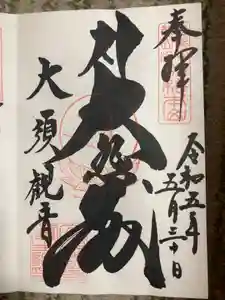 奉拝
令和五年
五月三十日
大悲殿
大須観音